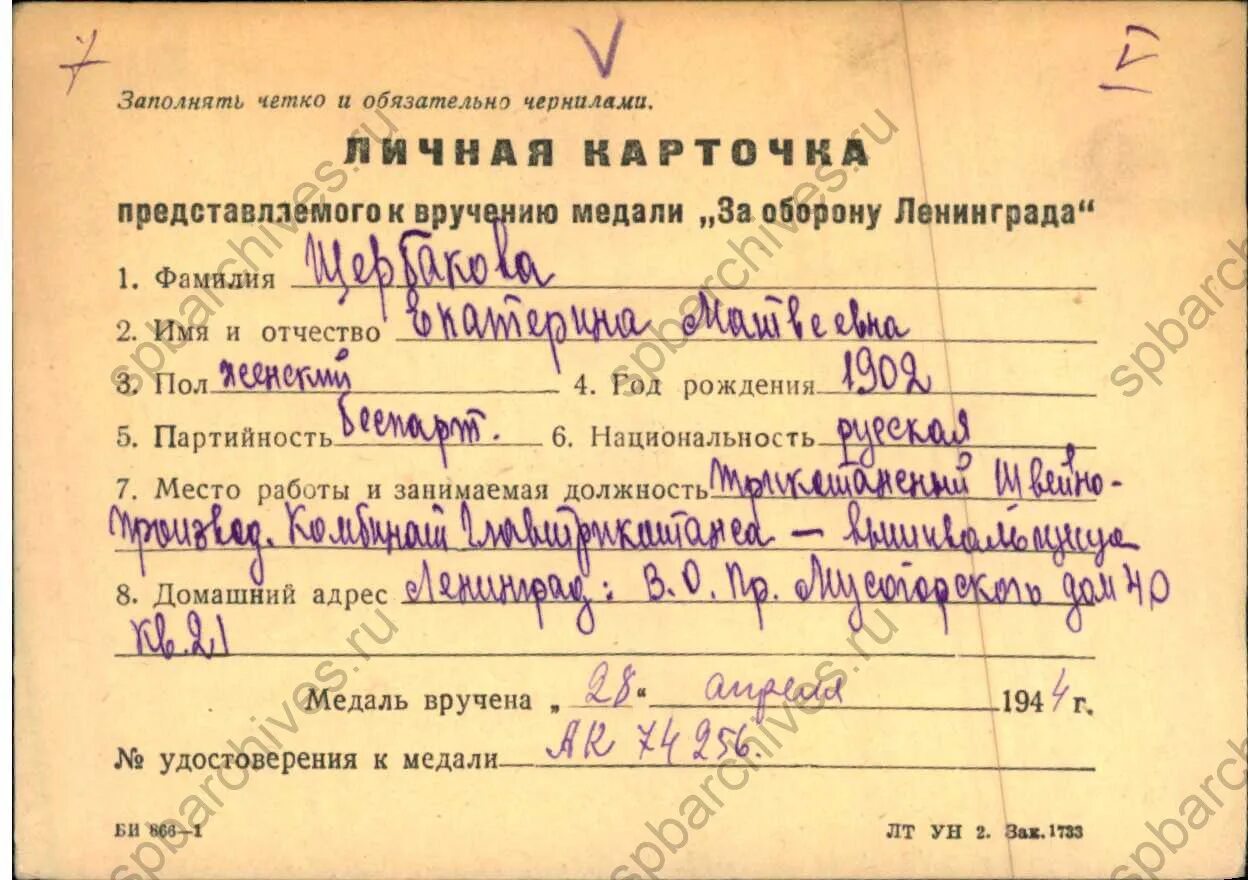 7 V V
Заполнять четко и обязательно чернилами.
ЛИЧНАЯ КАРТОЧКА
представляемого к вручению медали „За оборону Ленинграда“
1. Фамилия Щербакова
2. Имя и отчество Екатерина Матвеевна
3. Пол женский 4. Год рождения 1902
5. Партийность беспарт. 6. Национальность русская
7. Место работы и занимаемая должность Трикотажный Швейно-
производ. Комбинат Главтрикотажа — вышивальщица
8. Домашний адрес Ленинград: В.О. Пр. Мусоргского дом 40
кв. 21
Медаль вручена „28“ апреля 1944 г.
№ удостоверения к медали АК 74256.
БИ 866—1 ЛТ УН 2. Зак. 1733
spbarchives.ru